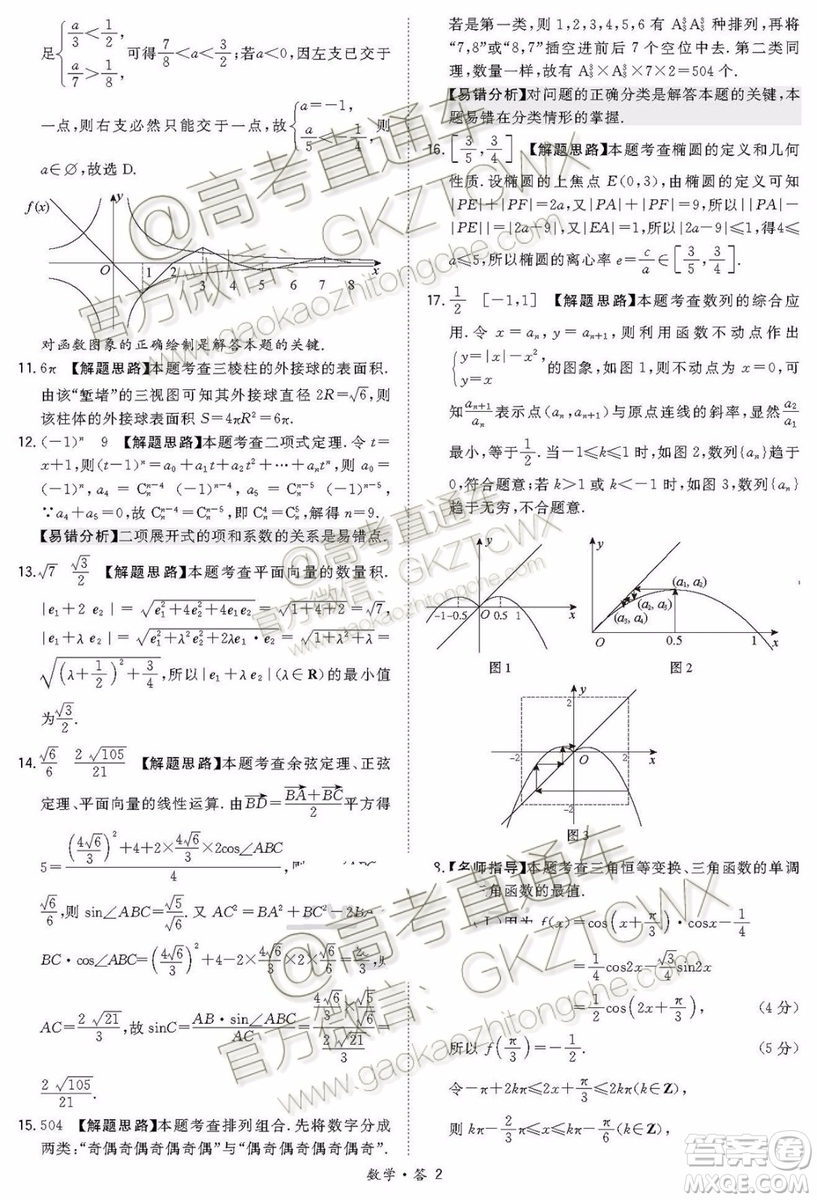 足{a/3<1/2, a/7>1/8, 可得7/8<a<3/2;若a<0,因左支已交于
一点,则右支必然只能交于一点,故{a=-1, a/5<-1/4, 此时
a∈∅,故选D.
f(x) y O 1 2 3 4 5 6 7 8 x
对函数图象的正确绘制是解答本题的关键.
11. 6π 【解题思路】本题考查三棱柱的外接球的表面积.
由该“堑堵”的三视图可知其外接球直径2R=√6,则
该柱体的外接球表面积S=4πR²=6π.
12. (-1)ⁿ 9 【解题思路】本题考查二项式定理.令t=
x+1,则(t-1)ⁿ=a₀+a₁t+a₂t²+⋯+aₙtⁿ;a₀=
(-1)ⁿ,a₄=Cₙⁿ⁻⁴(-1)ⁿ⁻⁴,a₅=Cₙⁿ⁻⁵(-1)ⁿ⁻⁵,
∵a₄+a₅=0,故Cₙⁿ⁻⁴=Cₙⁿ⁻⁵,即Cₙ⁴=Cₙ⁵,解得n=9.
【易错分析】二项展开式的项和系数的关系是易错点.
13. √7 √3/2 【解题思路】本题考查平面向量的数量积.
|e₁+2e₂|=√(e₁²+4e₂²+4e₁e₂)=√(1+4+2)=√7,
|e₁+λe₂|=√(e₁²+λ²e₂²+2λe₁e₂)=√(1+λ²+λ)=
√((λ+1/2)²+3/4),所以|e₁+λe₂|(λ∈R)的最小值
为√3/2.
14. √6/6 2√105/21 【解题思路】本题考查余弦定理、正弦
定理、平面向量的线性运算.由BD=(BA+BC)/2平方得
5=((4√6/3)²+4+2×(4√6/3)×2cos∠ABC)/4
√6/6,则sin∠ABC=√5/√6.又AC²=BA²+BC²-2BA·
BC·cos∠ABC=(4√6/3)²+4-2×(4√6/3)×2×√6/6,则
AC=2√21/3,故sinC=(AB·sin∠ABC)/AC=((4√6/3)×(√5/√6))/(2√21/3)=
2√105/21.
15. 504 【解题思路】本题考查排列组合.先将数字分成
两类:“奇偶奇偶奇偶奇偶”与“偶奇偶奇偶奇偶奇”.
若是第一类,则1,2,3,4,5,6有A₃³A₃³种排列,再将
“7,8”或“8,7”插空进前后7个空位中去.第二类同
理,数量一样,故有A₃³×A₃³×7×2=504个.
【易错分析】对问题的正确分类是解答本题的关键,本
题易错在分类情形的掌握.
16. [3/5,3/4] 【解题思路】本题考查椭圆的定义和几何
性质.设椭圆的上焦点E(0,3),由椭圆的定义可知
|PE|+|PF|=2a,又|PA|+|PF|=9,所以||PA|-
|PE||=|2a-9|,又|EA|=1,所以|2a-9|≤1,得4≤a
≤5,所以椭圆的离心率e=c/a∈[3/5,3/4].
17. 1/2 [-1,1] 【解题思路】本题考查数列的综合应
用.令x=aₙ,y=aₙ₊₁,则利用函数不动点作出
{y=|x|-x², y=x 的图象,如图1,则不动点为x=0,可
知aₙ₊₁/aₙ表示点(aₙ,aₙ₊₁)与原点连线的斜率,易知a₂/a₁
最小,等于1/2.当-1≤k≤1时,如图2,数列{aₙ}趋于
0,符合题意;若k>1或k<-1时,如图3,数列{aₙ}
趋于无穷,不合题意.
y -1 -0.5 O 0.5 1 x
图1
y (a₁,a₂) (a₂,a₃) (a₃,a₄) O 0.5 1 x
图2
y 2 -2 O 2 x -2
图3
8. 【名师指导】本题考查三角恒等变换、三角函数的单调
角函数的最值.
因为f(x)=cos(x+π/3)·cosx-1/4
=1/4cos2x-√3/4sin2x
=1/2cos(2x+π/3), (4分)
所以f(π/3)=-1/2. (5分)
令-π+2kπ≤2x+π/3≤2kπ(k∈Z),
则kπ-2π/3≤x≤kπ-π/6(k∈Z).
数学·答 2
@高考直通车
官方微信:GKZTCWX
www.gaokaozhitongche.com
@高考直通车
官方微信:GKZTCWX
www.gaokaozhitongche.com
答案圈
MXQE.COM